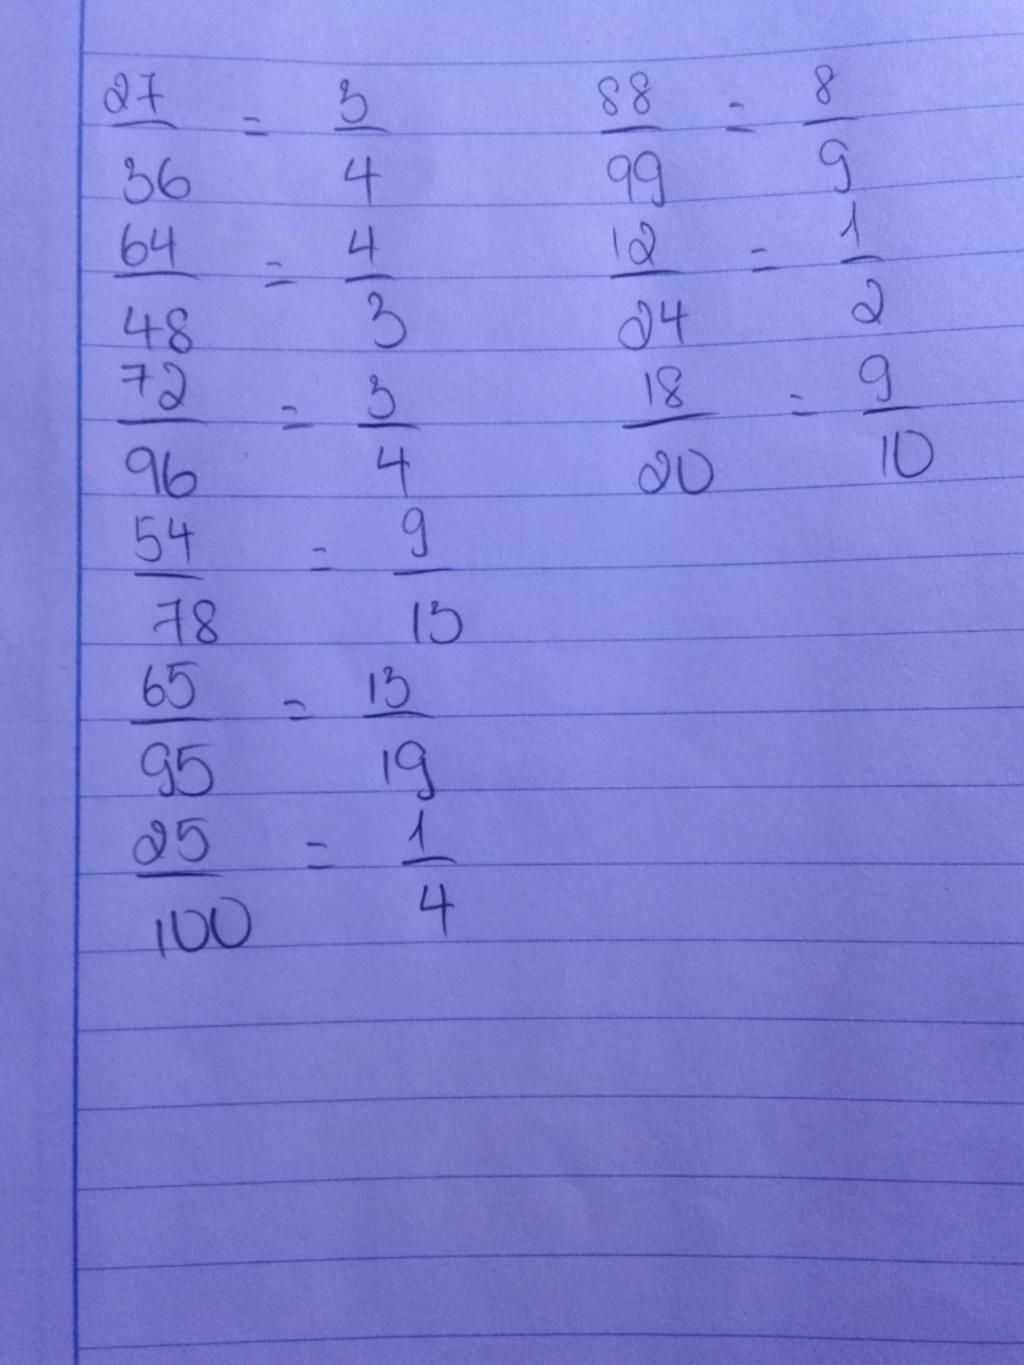 27/36 = 3/4
64/48 = 4/3
72/96 = 3/4
54/78 = 9/13
65/95 = 13/19
25/100 = 1/4
88/99 = 8/9
12/24 = 1/2
18/20 = 9/10